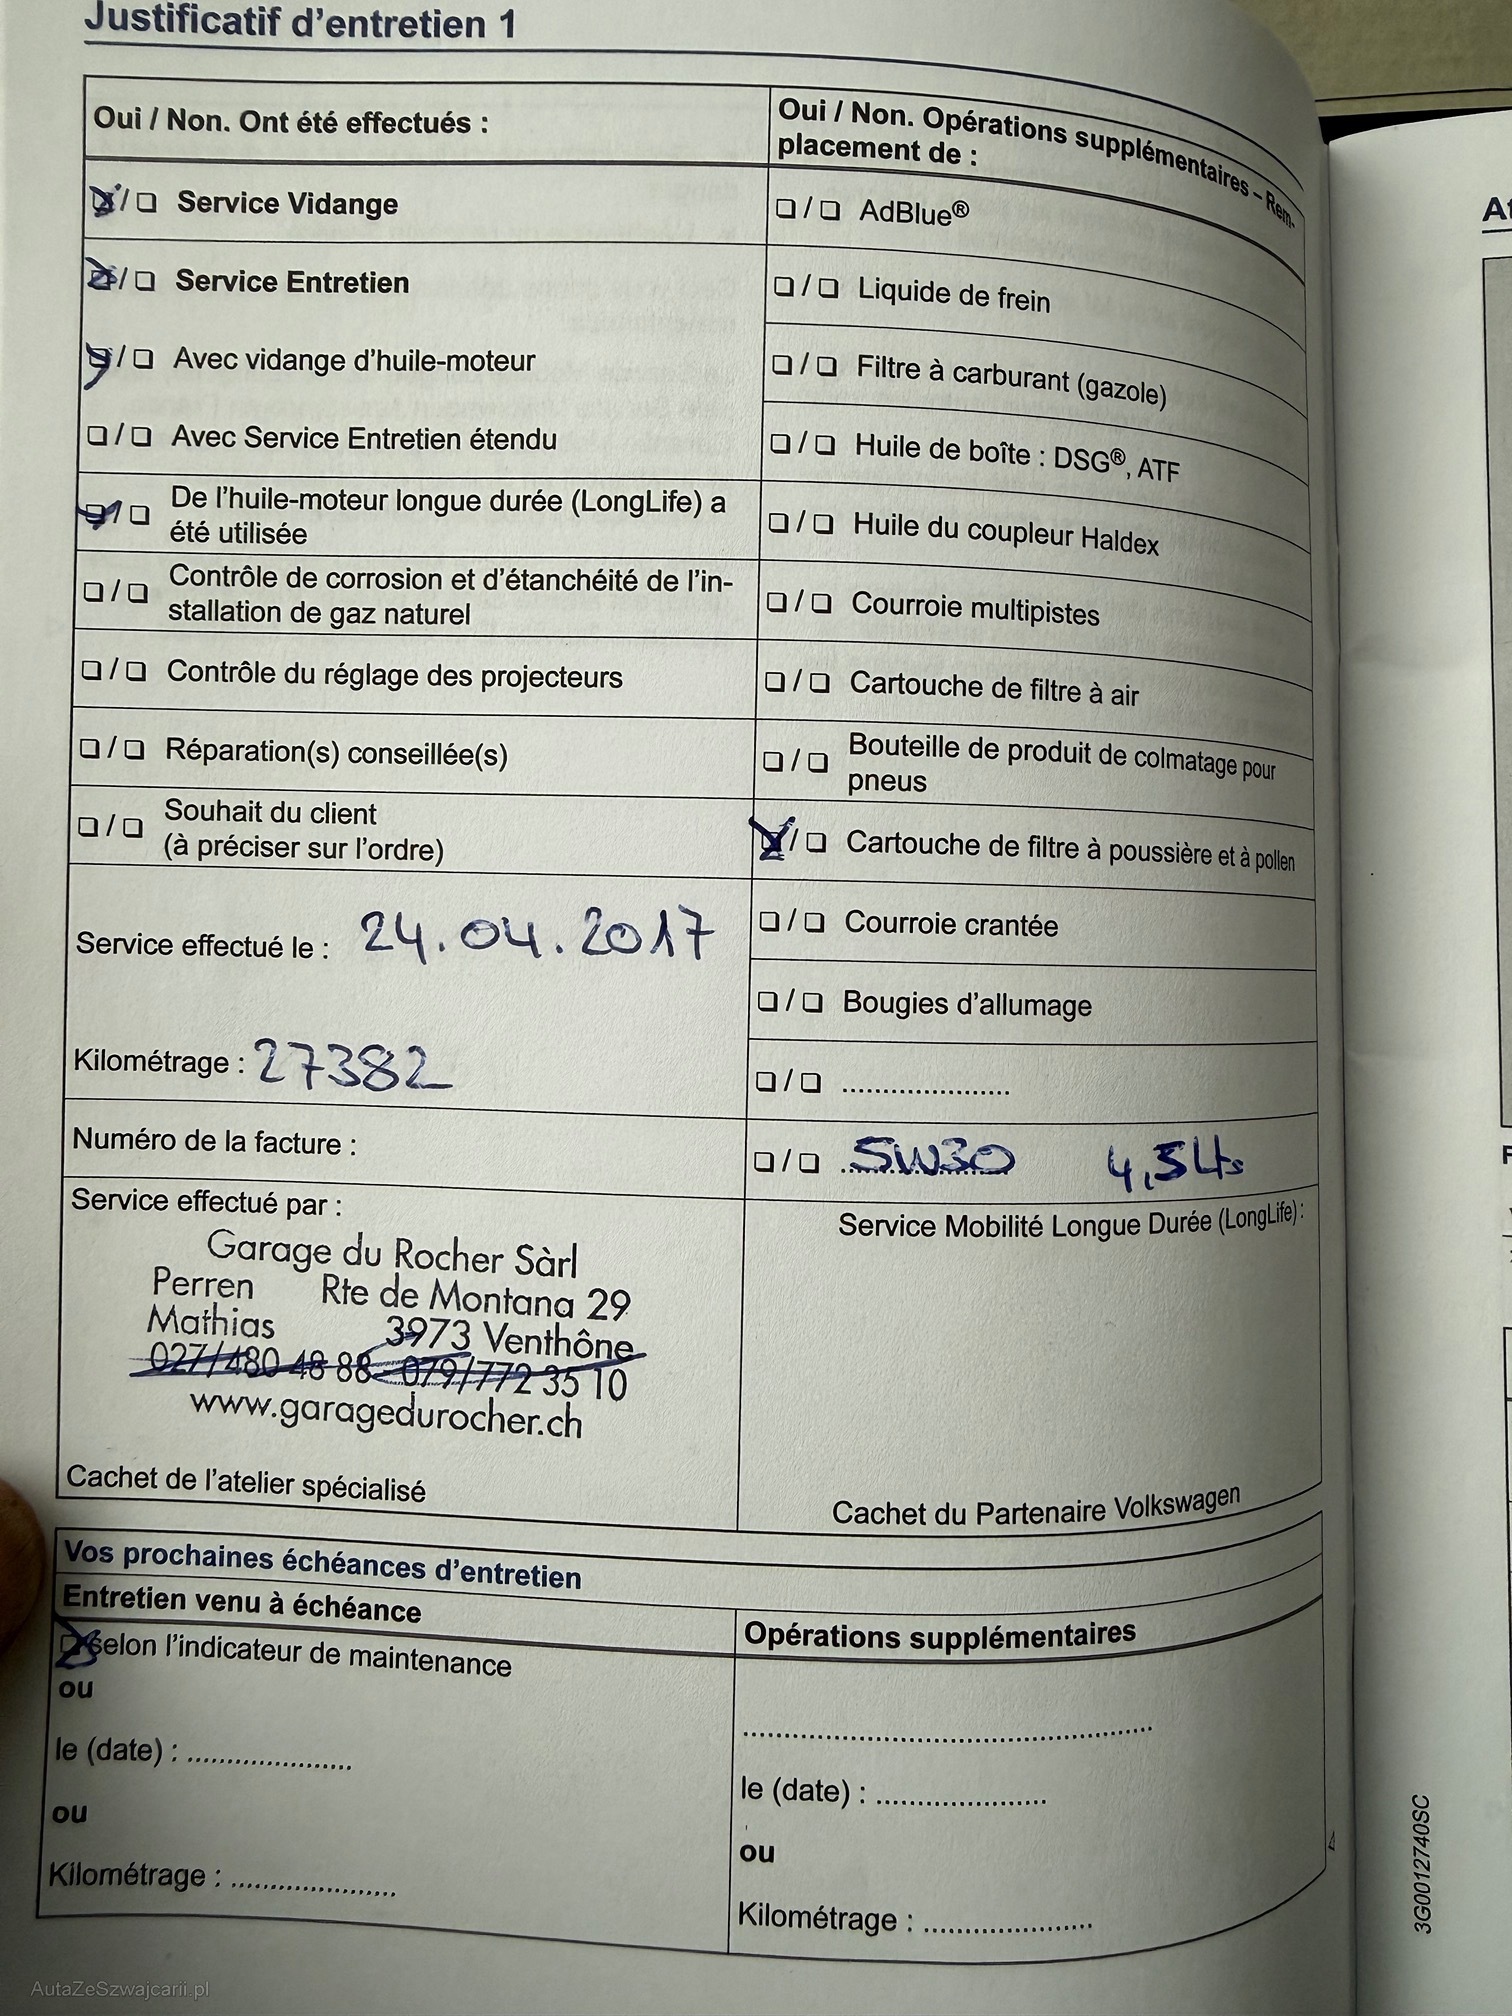 Justificatif d'entretien 1
Oui / Non. Ont été effectués :
❏ / ❏ Service Vidange
❏ / ❏ Service Entretien
❏ / ❏ Avec vidange d'huile-moteur
❏ / ❏ Avec Service Entretien étendu
❏ / ❏ De l'huile-moteur longue durée (LongLife) a
été utilisée
❏ / ❏ Contrôle de corrosion et d'étanchéité de l'in-
stallation de gaz naturel
❏ / ❏ Contrôle du réglage des projecteurs
❏ / ❏ Réparation(s) conseillée(s)
❏ / ❏ Souhait du client
(à préciser sur l'ordre)
Service effectué le : 24.04.2017
Kilométrage : 27382
Numéro de la facture :
Service effectué par :
Garage du Rocher Sàrl
Perren Rte de Montana 29
Mathias 3973 Venthône
027/480 48 88 - 079/772 35 10
www.garagedurocher.ch
Cachet de l'atelier spécialisé
Oui / Non. Opérations supplémentaires – Rem-
placement de :
❏ / ❏ AdBlue®
❏ / ❏ Liquide de frein
❏ / ❏ Filtre à carburant (gazole)
❏ / ❏ Huile de boîte : DSG®, ATF
❏ / ❏ Huile du coupleur Haldex
❏ / ❏ Courroie multipistes
❏ / ❏ Cartouche de filtre à air
❏ / ❏ Bouteille de produit de colmatage pour
pneus
❏ / ❏ Cartouche de filtre à poussière et à pollen
❏ / ❏ Courroie crantée
❏ / ❏ Bougies d'allumage
❏ / ❏ .....................
❏ / ❏ 5W30 4,5 Lts
Service Mobilité Longue Durée (LongLife) :
Cachet du Partenaire Volkswagen
Vos prochaines échéances d'entretien
Entretien venu à échéance
❏ selon l'indicateur de maintenance
ou
le (date) : .....................
ou
Kilométrage : .....................
Opérations supplémentaires
..................................................
le (date) : .....................
ou
Kilométrage : .....................
3G0012740SC
AutaZeSzwajcarii.pl